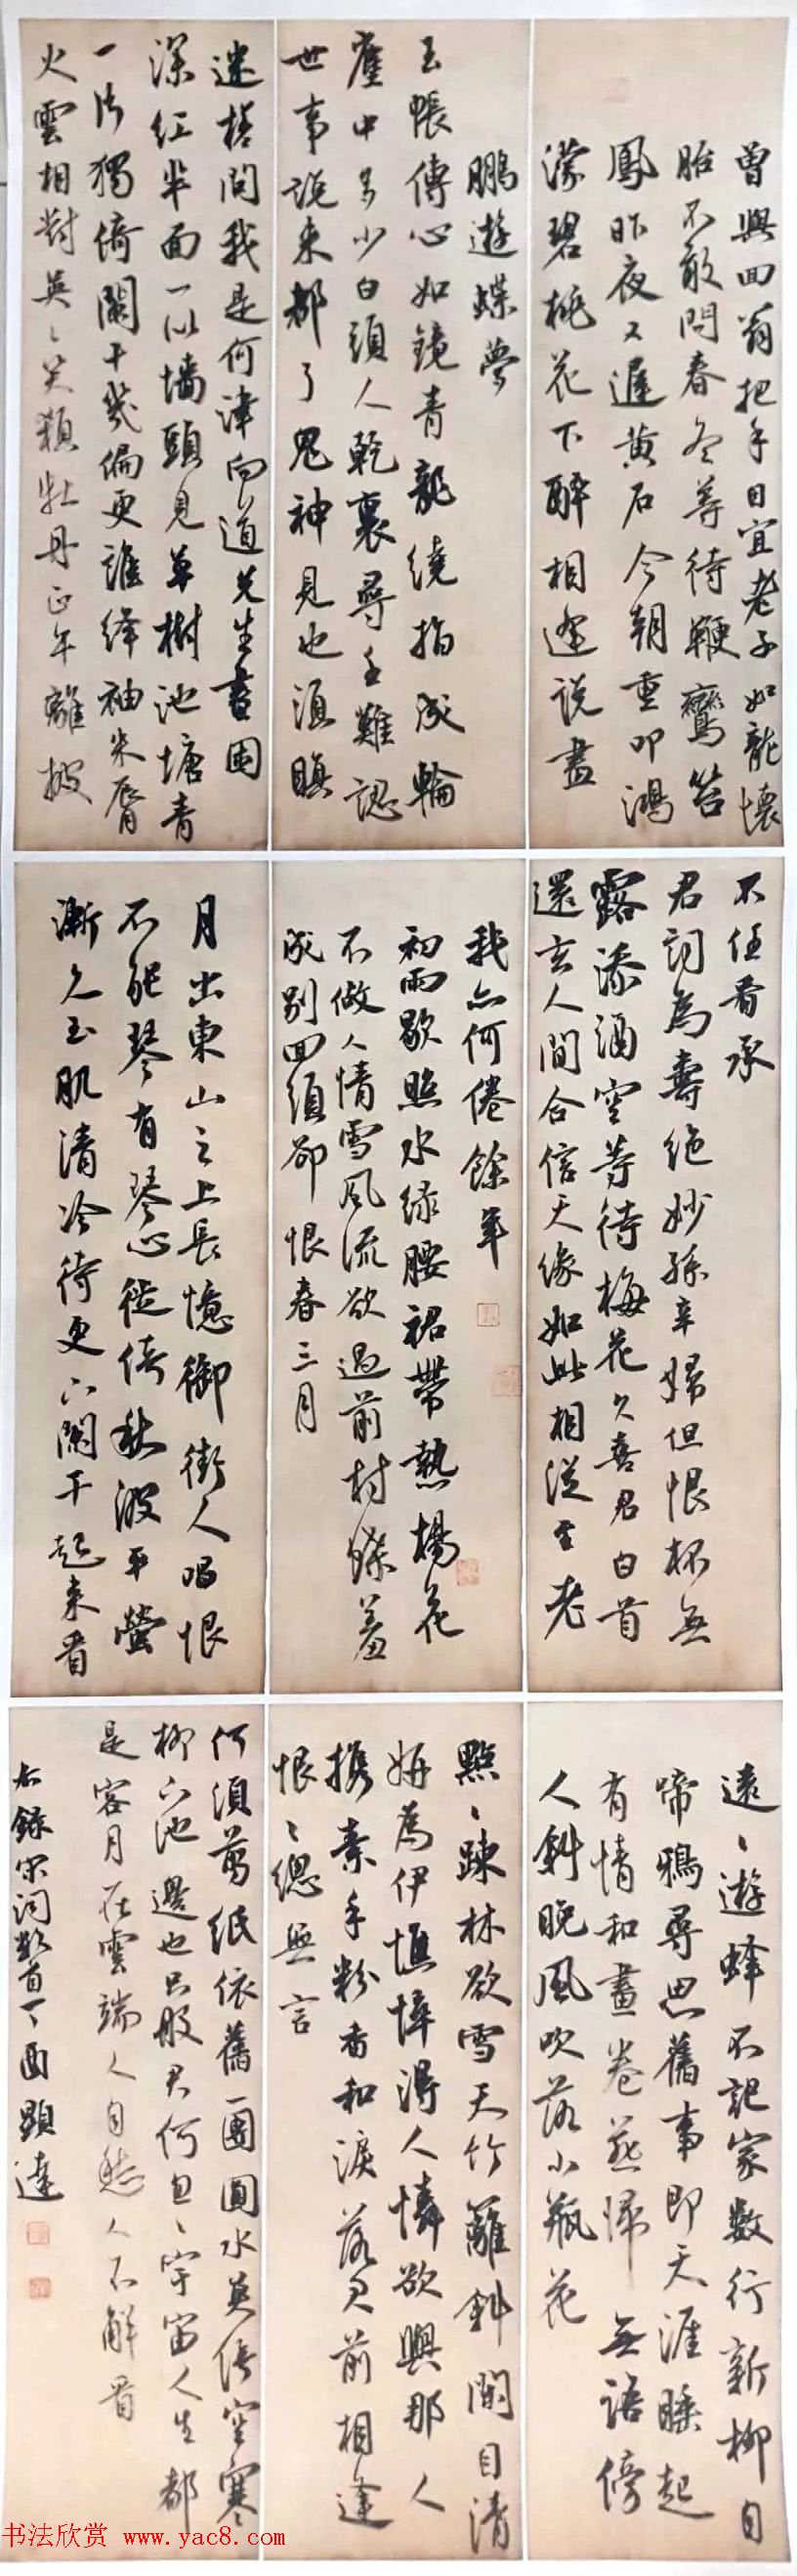 曾與回翁把手日宜老子如龍懷
胎不敢問春冬等待鞭鸞笞
鳳昨夜又遲黃石今朝重叩鴻
濛碧桃花下醉相逢說盡
鵬遊蝶夢
玉帳傳心如鏡青龍繞指成輪
塵中多少白頭人乾裹尋玉難認
世事說來都了鬼神見也
迷樓問我是何津向道先生書困
深紅半面一似墻頭見草樹池塘青
一片獨倚闌干幾偏更誰絳袖朱脣
火雲相對英〻笑類牡丹正午離披
不任看承
君詞為壽絕妙孫辛婦但恨杯無
露添酒空等待梅花久喜君白首
還玄人間合信天緣如此相從至老
我亦何倦餘年
初雨歇照水綠腰裙帶熱楊花
不做人情雪風流欲過前村蝶羞
成別回須卻恨春三月
月出東山之上長憶御街人唱恨
不能琴有琴心徙倚秋波平瑩
漸久玉肌清冷待更六闌干起來看
遠〻遊蜂不記家數行新柳自
啼鴉尋思舊事即天涯睡起
有情和畫卷燕歸無語傍
人斜晚風吹落小瓶花
點〻疎林欲雪天竹籬斜閉自清
妍為伊憔悴得人憐欲與那人
攜素手粉香和淚落君前相逢
恨〻總無言
何須剪紙依舊一團圓水英倚空寒
柳下池邊也只般君何〻宇宙人生都
是客月在雲端人自愁人不解看
右錄宋詞數首丁酉顯達
书法欣赏 www.yac8.com